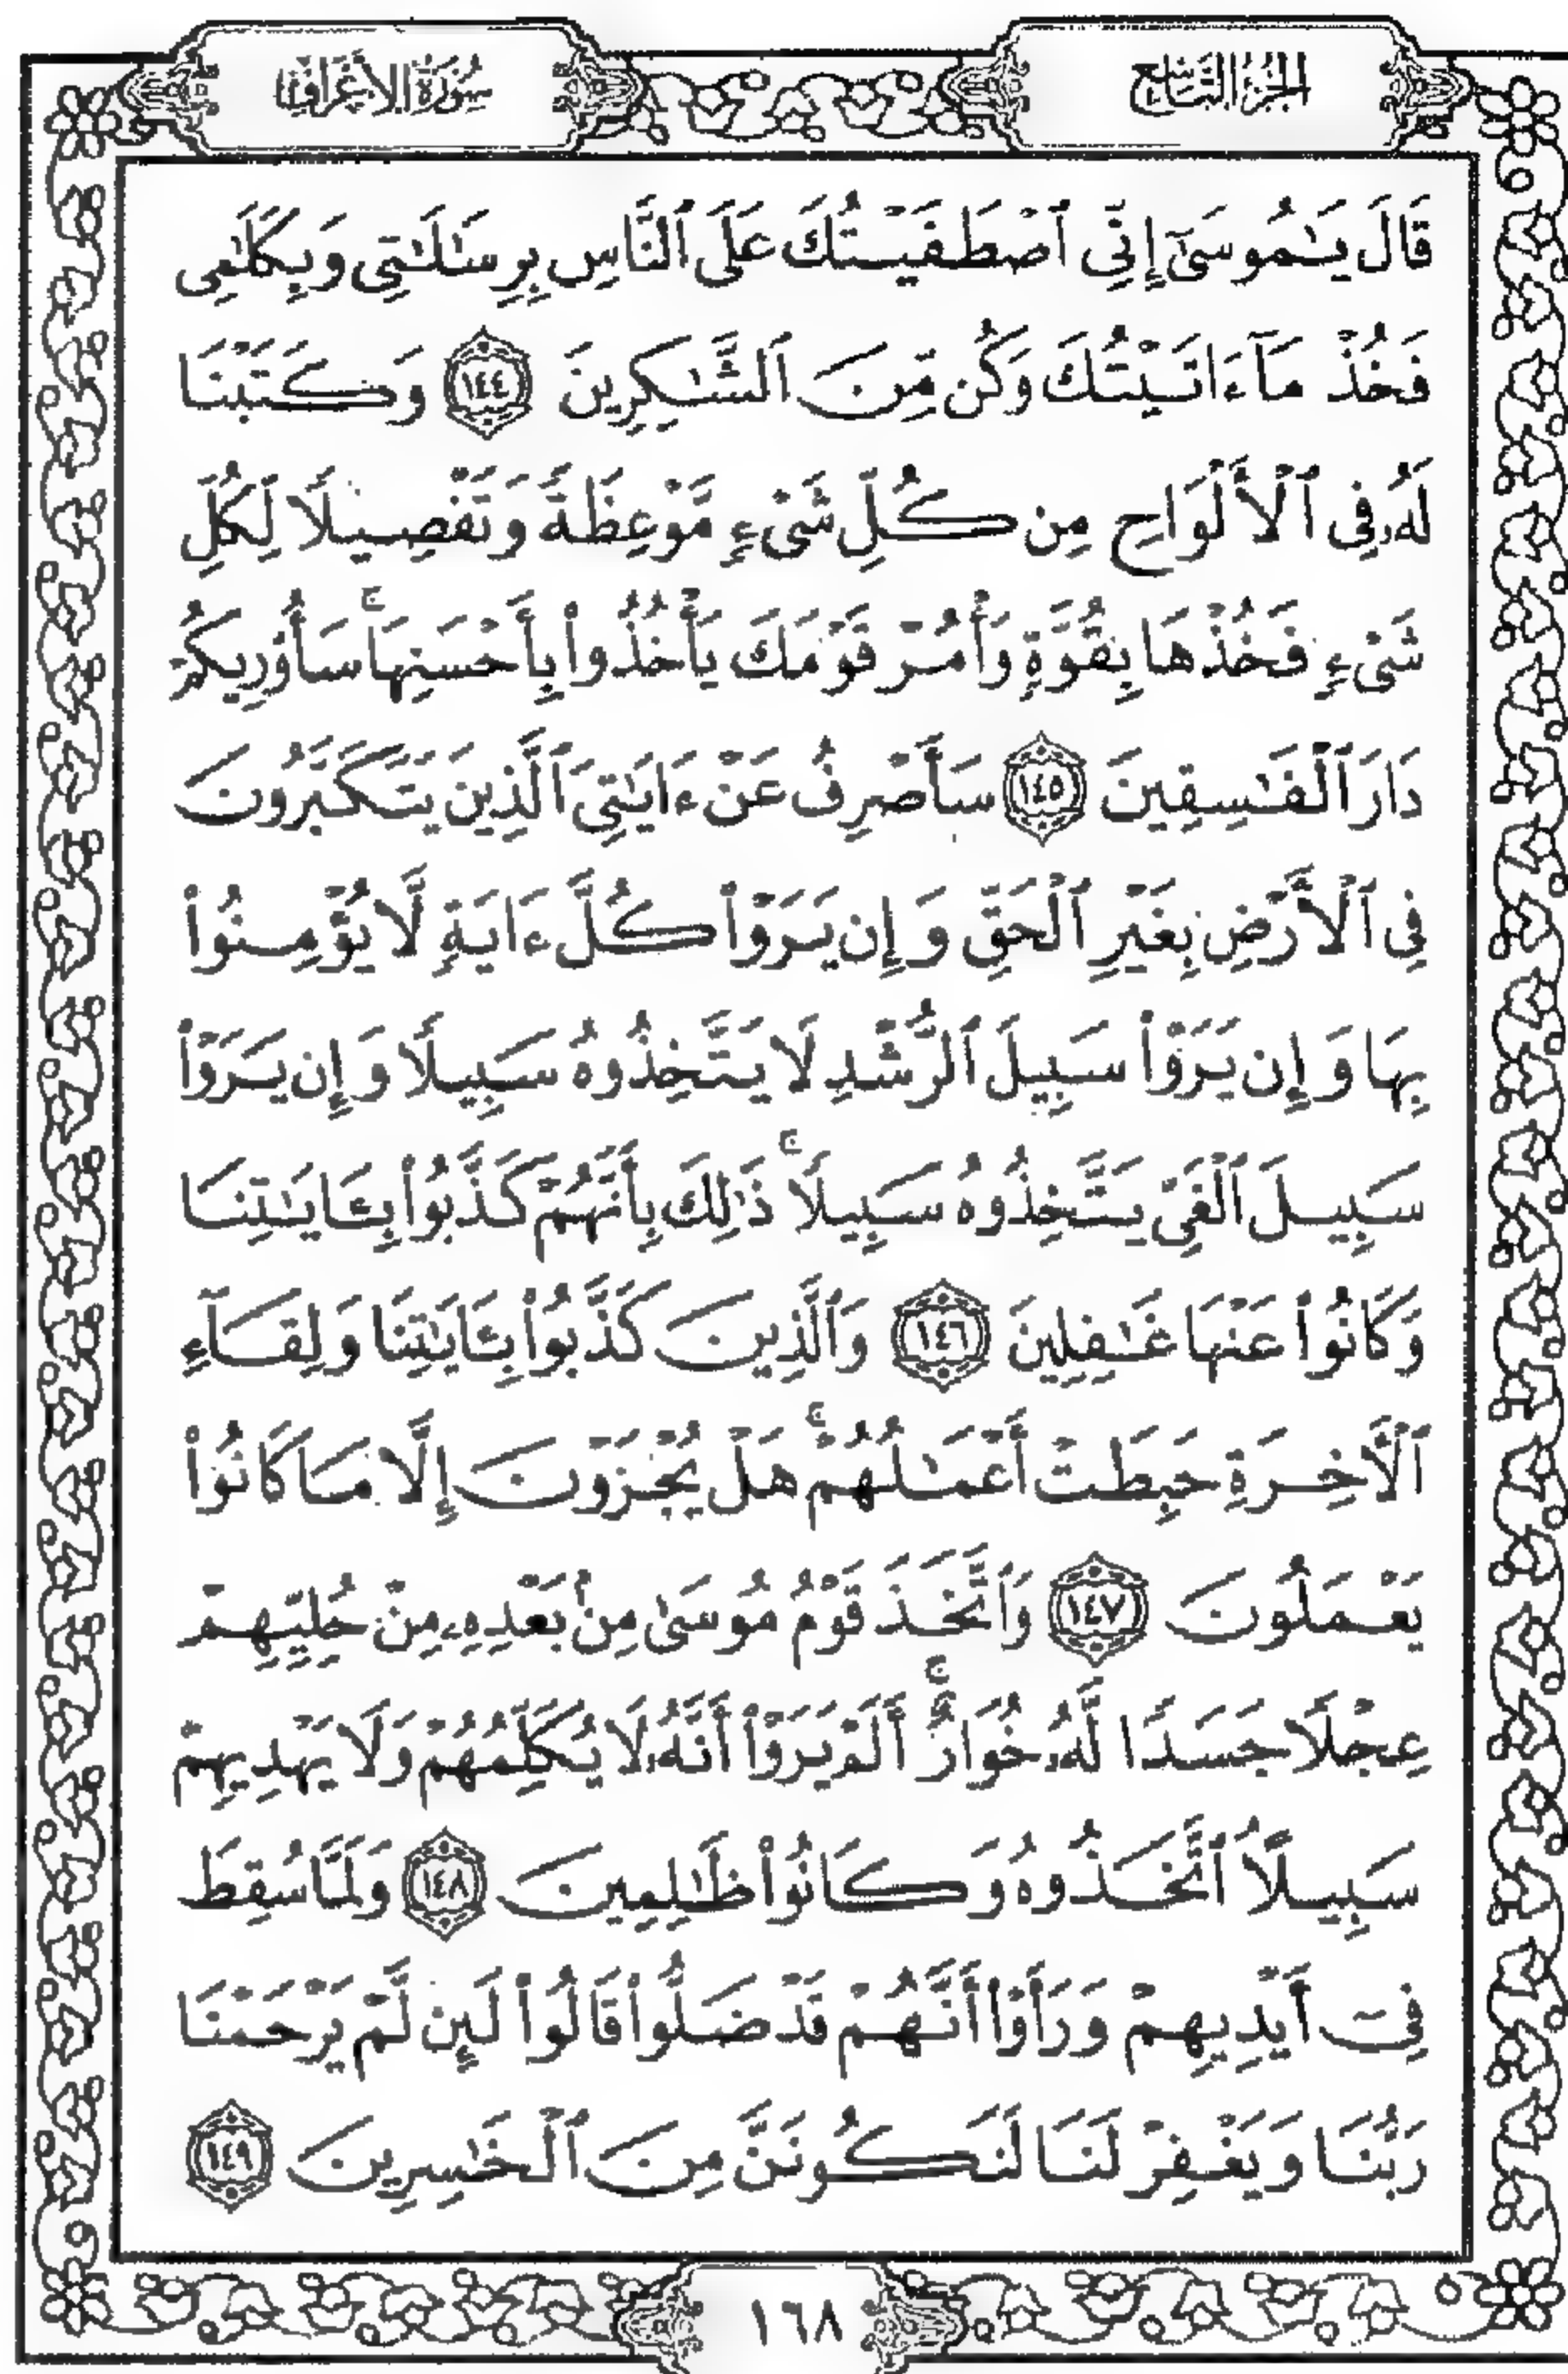 الجزء التاسع
سورة الأعراف
قَالَ يَٰمُوسَىٰٓ إِنِّي ٱصْطَفَيْتُكَ عَلَى ٱلنَّاسِ بِرِسَٰلَٰتِي وَبِكَلَٰمِي
فَخُذْ مَآ ءَاتَيْتُكَ وَكُن مِّنَ ٱلشَّٰكِرِينَ ١٤٤ وَكَتَبْنَا
لَهُۥ فِي ٱلْأَلْوَاحِ مِن كُلِّ شَيْءٍ مَّوْعِظَةً وَتَفْصِيلًا لِّكُلِّ
شَيْءٍ فَخُذْهَا بِقُوَّةٍ وَأْمُرْ قَوْمَكَ يَأْخُذُوا۟ بِأَحْسَنِهَا ۚ سَأُو۟رِيكُمْ
دَارَ ٱلْفَٰسِقِينَ ١٤٥ سَأَصْرِفُ عَنْ ءَايَٰتِيَ ٱلَّذِينَ يَتَكَبَّرُونَ
فِي ٱلْأَرْضِ بِغَيْرِ ٱلْحَقِّ وَإِن يَرَوْا۟ كُلَّ ءَايَةٍ لَّا يُؤْمِنُوا۟
بِهَا وَإِن يَرَوْا۟ سَبِيلَ ٱلرُّشْدِ لَا يَتَّخِذُوهُ سَبِيلًا وَإِن يَرَوْا۟
سَبِيلَ ٱلْغَيِّ يَتَّخِذُوهُ سَبِيلًا ۚ ذَٰلِكَ بِأَنَّهُمْ كَذَّبُوا۟ بِـَٔايَٰتِنَا
وَكَانُوا۟ عَنْهَا غَٰفِلِينَ ١٤٦ وَٱلَّذِينَ كَذَّبُوا۟ بِـَٔايَٰتِنَا وَلِقَآءِ
ٱلْءَاخِرَةِ حَبِطَتْ أَعْمَٰلُهُمْ ۚ هَلْ يُجْزَوْنَ إِلَّا مَا كَانُوا۟
يَعْمَلُونَ ١٤٧ وَٱتَّخَذَ قَوْمُ مُوسَىٰ مِنۢ بَعْدِهِۦ مِنْ حُلِيِّهِمْ
عِجْلًا جَسَدًا لَّهُۥ خُوَارٌ ۚ أَلَمْ يَرَوْا۟ أَنَّهُۥ لَا يُكَلِّمُهُمْ وَلَا يَهْدِيهِمْ
سَبِيلًا ٱتَّخَذُوهُ وَكَانُوا۟ ظَٰلِمِينَ ١٤٨ وَلَمَّا سُقِطَ
فِيٓ أَيْدِيهِمْ وَرَأَوْا۟ أَنَّهُمْ قَدْ ضَلُّوا۟ قَالُوا۟ لَئِن لَّمْ يَرْحَمْنَا
رَبُّنَا وَيَغْفِرْ لَنَا لَنَكُونَنَّ مِنَ ٱلْخَٰسِرِينَ ١٤٩
١٦٨